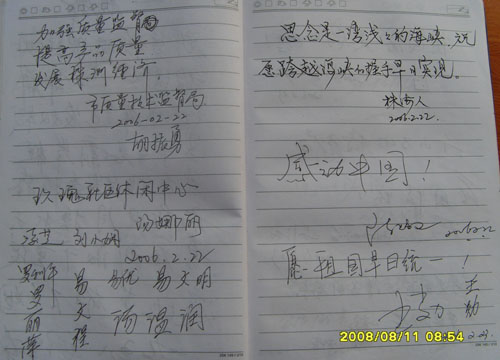 加强质量监督
提高产品质量
发展株洲经济。
市质量技术监督局
2006-02-22
胡振勇
玫瑰社区休闲中心
汤娜丽
刘小娟
2006.2.22
罗丽萍
易文程
易文明
汤温润
思念是一湾浅浅的海峡，祝
愿跨越海峡的握手早日实现。
2006.2.22.
感动中国！
愿祖国早日统一！
2008/08/11 08:54